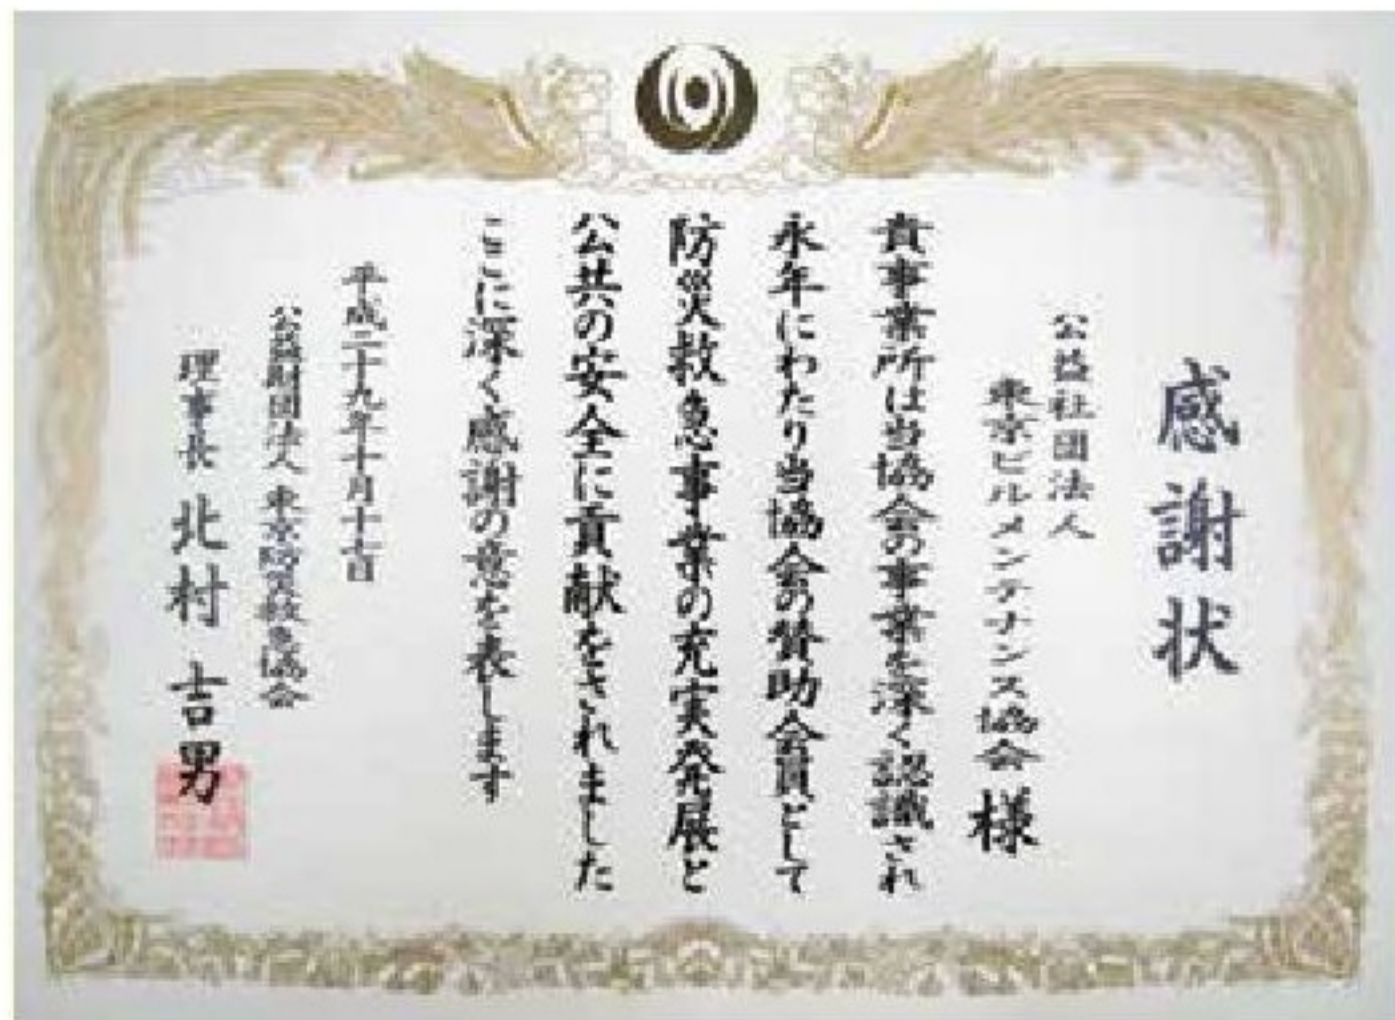 感謝状
公益社団法人
東京ビルメンテナンス協会 様
貴事業所は当協会の事業を深く認識され
永年にわたり当協会の賛助会員として
防災救急事業の充実発展と
公共の安全に貢献をされました
ここに深く感謝の意を表します
平成二十九年十月十七日
公益財団法人 東京防災救急協会
理事長 北村 吉男